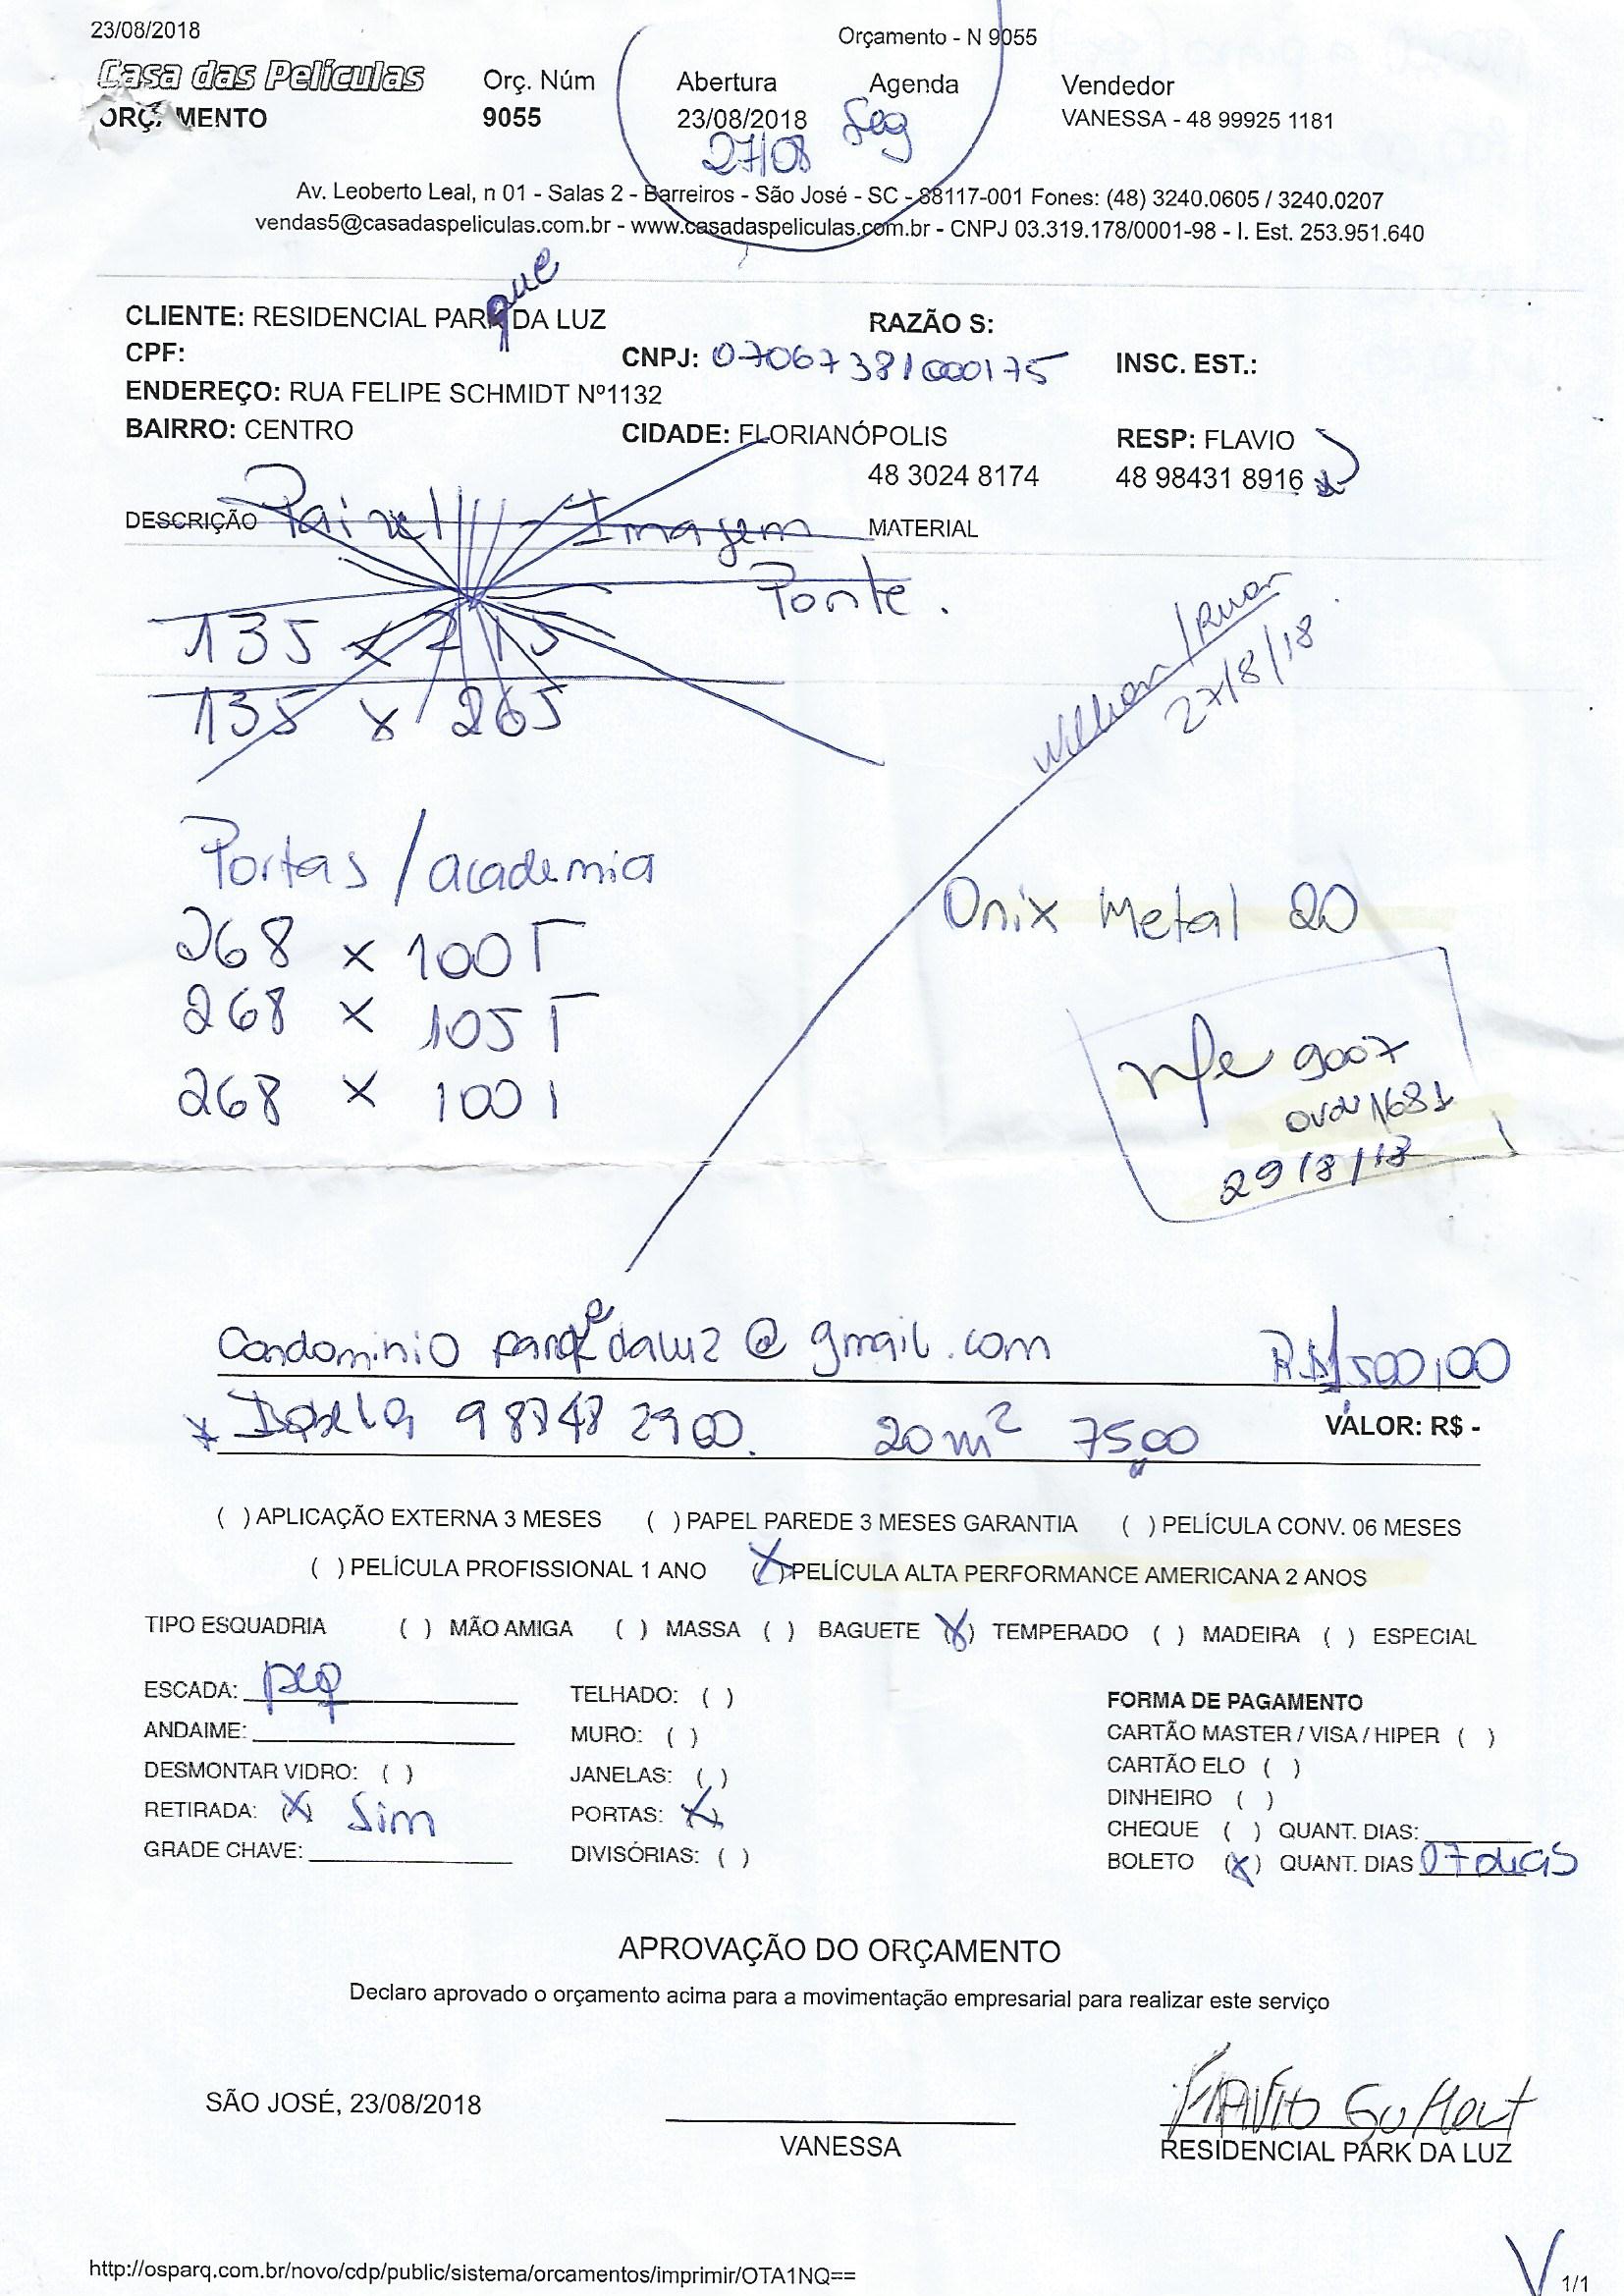 23/08/2018 Orçamento - N 9055
Casa das Películas Orç. Núm Abertura Agenda Vendedor
ORÇAMENTO 9055 23/08/2018 Seg VANESSA - 48 99925 1181
27/08
Av. Leoberto Leal, n 01 - Salas 2 - Barreiros - São José - SC - 88117-001 Fones: (48) 3240.0605 / 3240.0207
vendas5@casadaspeliculas.com.br - www.casadaspeliculas.com.br - CNPJ 03.319.178/0001-98 - I. Est. 253.951.640
CLIENTE: RESIDENCIAL PARque DA LUZ RAZÃO S:
CPF: CNPJ: 07067381000175 INSC. EST.:
ENDEREÇO: RUA FELIPE SCHMIDT Nº1132
BAIRRO: CENTRO CIDADE: FLORIANÓPOLIS RESP: FLAVIO
48 3024 8174 48 98431 8916
DESCRIÇÃO Painel Imagem MATERIAL
Ponte.
135 x 215
135 x 265
Willian / Ruan
27/8/18
Portas / academia
268 x 100 Onix Metal 20
268 x 105
268 x 100
nfe 9007
29/8/18
Condominio parque daluz @ gmail.com R$1500,00
20m² 75,00 VALOR: R$ -
( ) APLICAÇÃO EXTERNA 3 MESES ( ) PAPEL PAREDE 3 MESES GARANTIA ( ) PELÍCULA CONV. 06 MESES
( ) PELÍCULA PROFISSIONAL 1 ANO (X) PELÍCULA ALTA PERFORMANCE AMERICANA 2 ANOS
TIPO ESQUADRIA ( ) MÃO AMIGA ( ) MASSA ( ) BAGUETE (X) TEMPERADO ( ) MADEIRA ( ) ESPECIAL
ESCADA: peq TELHADO: ( ) FORMA DE PAGAMENTO
ANDAIME: MURO: ( ) CARTÃO MASTER / VISA / HIPER ( )
DESMONTAR VIDRO: ( ) JANELAS: ( ) CARTÃO ELO ( )
RETIRADA: (X) Sim PORTAS: (X) DINHEIRO ( )
GRADE CHAVE: DIVISÓRIAS: ( ) CHEQUE ( ) QUANT. DIAS:
BOLETO (X) QUANT. DIAS 07 dias
APROVAÇÃO DO ORÇAMENTO
Declaro aprovado o orçamento acima para a movimentação empresarial para realizar este serviço
SÃO JOSÉ, 23/08/2018 FLAVIO
VANESSA RESIDENCIAL PARK DA LUZ
http://osparq.com.br/novo/cdp/public/sistema/orcamentos/imprimir/OTA1NQ== 1/1